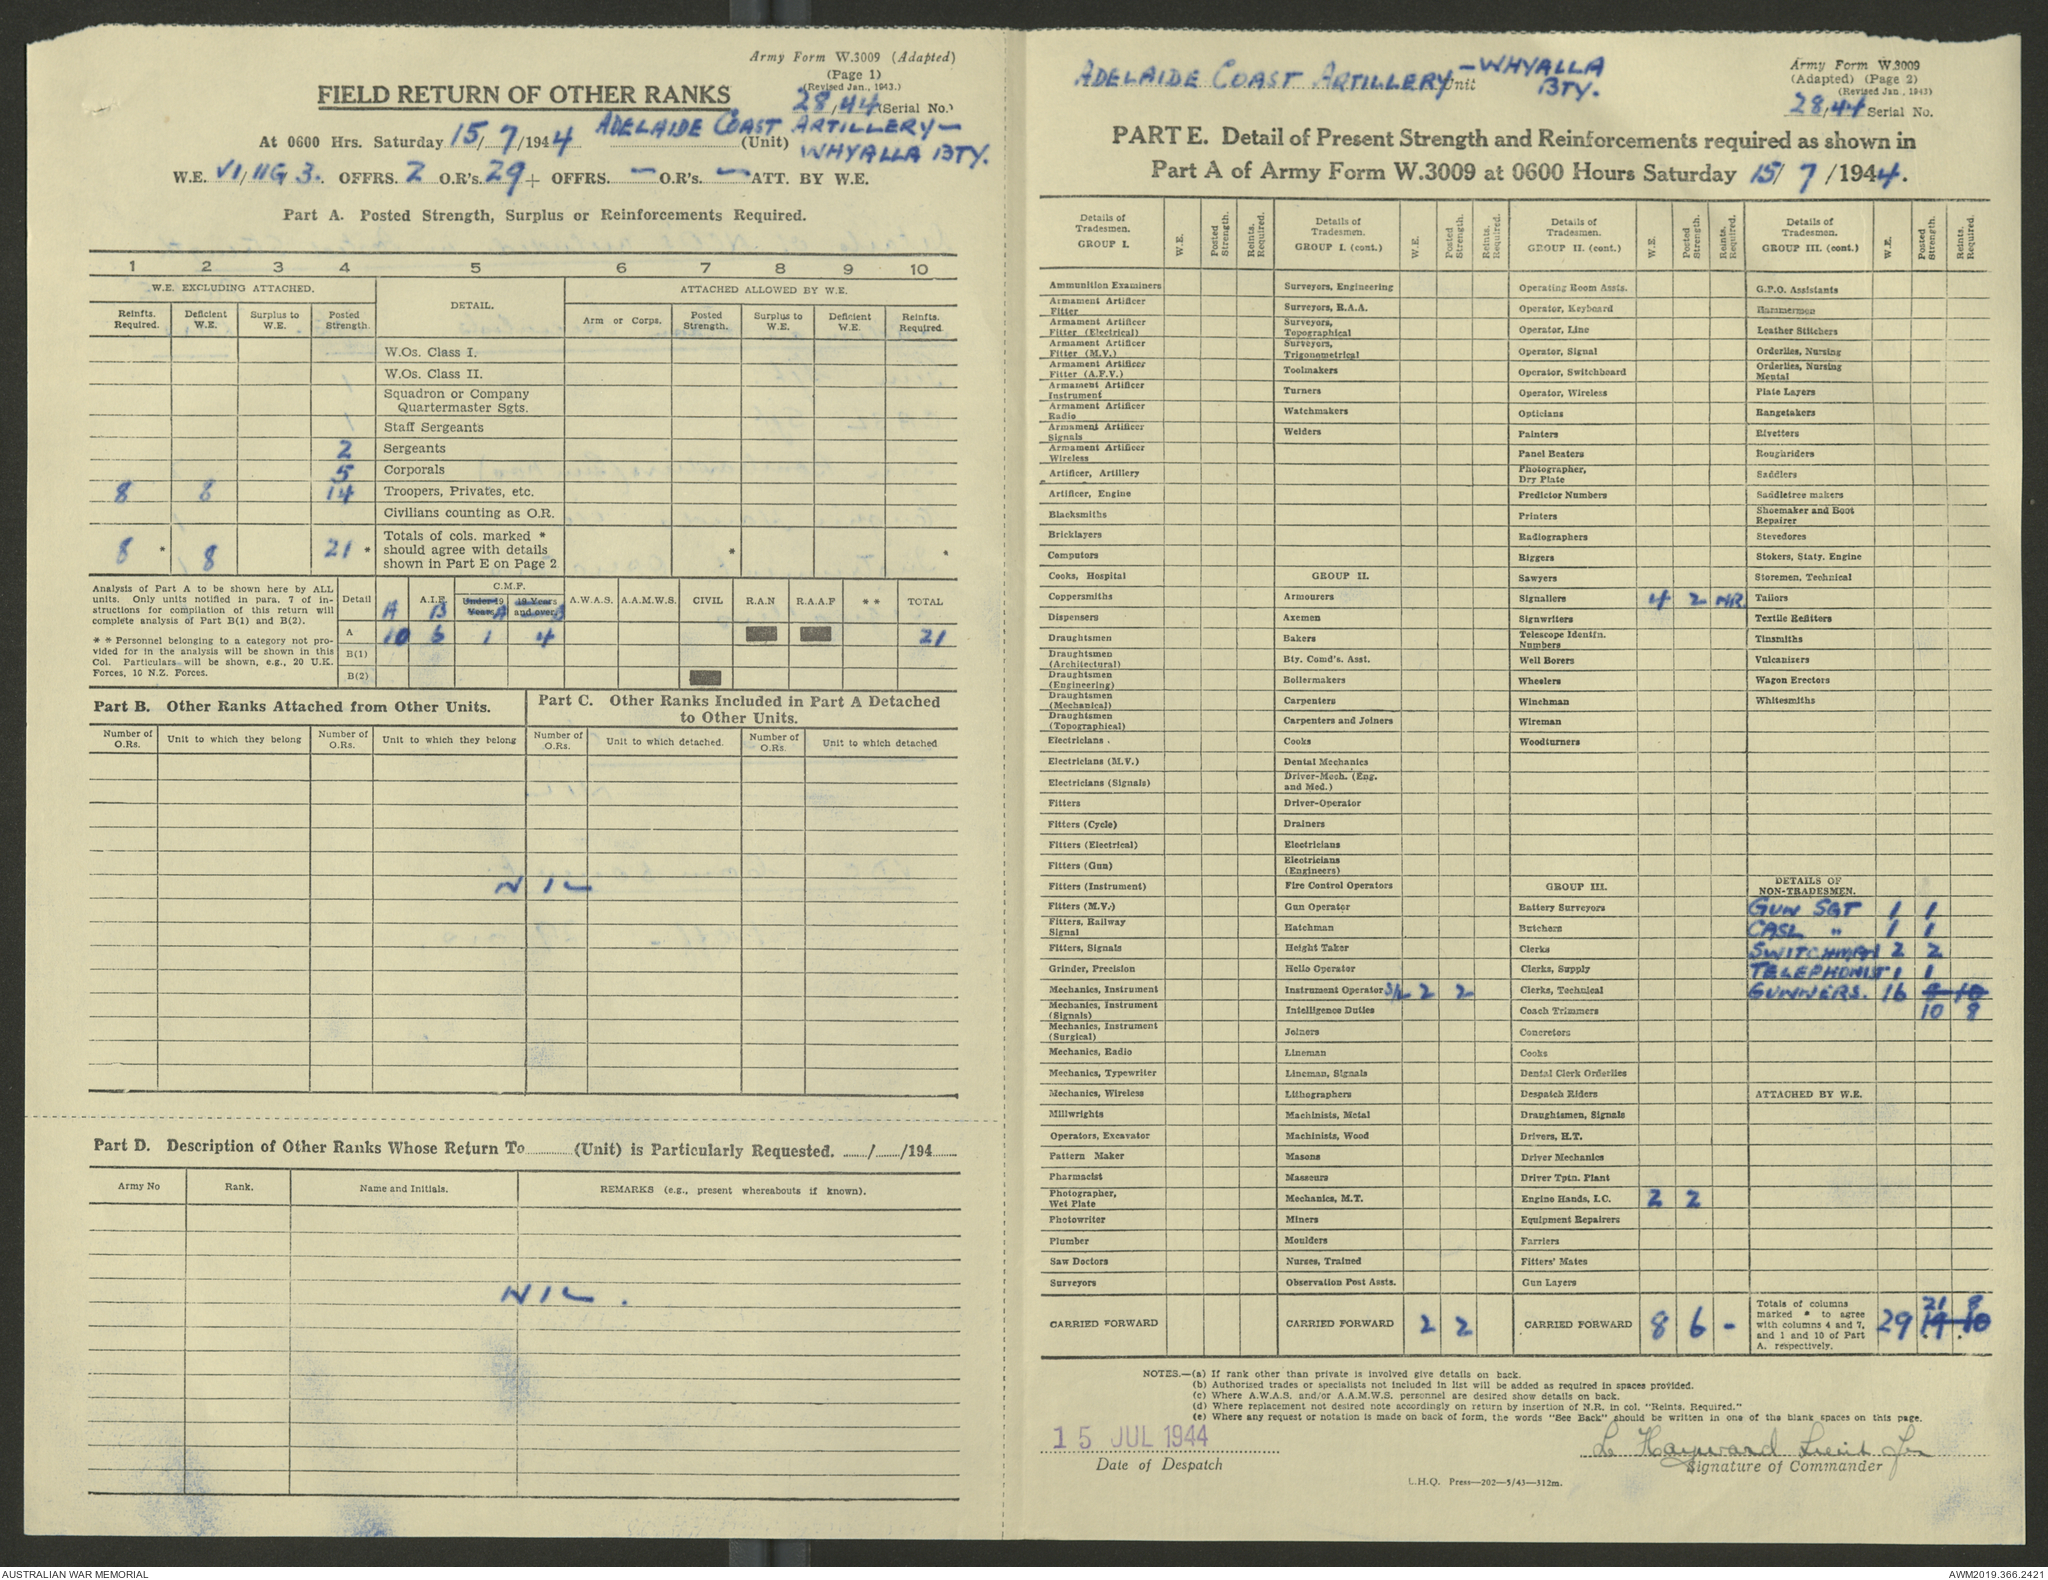 Army Form W.3009 (Adapted)
(Page 1)
(Revised Jan., 1943.)
FIELD RETURN OF OTHER RANKS
28/44 (Serial No.)
At 0600 Hrs. Saturday 15/7/1944 ADELAIDE COAST ARTILLERY— (Unit)
WHYALLA BTY.
W.E. VI/11G 3. OFFRS. 2 O.R's. 29 + OFFRS. — O.R's. — ATT. BY W.E.
Part A. Posted Strength, Surplus or Reinforcements Required.
1 2 3 4 5 6 7 8 9 10
W.E. EXCLUDING ATTACHED. DETAIL. ATTACHED ALLOWED BY W.E.
Reinfts. Required. Deficient W.E. Surplus to W.E. Posted Strength. Arm or Corps. Posted Strength. Surplus to W.E. Deficient W.E. Reinfts. Required.
W.Os. Class I.
W.Os. Class II.
Squadron or Company
Quartermaster Sgts.
Staff Sergeants
2 Sergeants
5 Corporals
8 8 14 Troopers, Privates, etc.
Civilians counting as O.R.
8 * 8 21 * Totals of cols. marked * should agree with details shown in Part E on Page 2 * *
Analysis of Part A to be shown here by ALL
units. Only units notified in para. 7 of in-
structions for compilation of this return will
complete analysis of Part B(1) and B(2).
* * Personnel belonging to a category not pro-
vided for in the analysis will be shown in this
Col. Particulars will be shown, e.g., 20 U.K.
Forces, 10 N.Z. Forces.
Detail A.I.F. C.M.F. A.W.A.S. A.A.M.W.S. CIVIL R.A.N R.A.A.F * * TOTAL
Under 19 Years 19 Years and over
A B A B
A 10 6 1 4 21
B(1)
B(2)
Part B. Other Ranks Attached from Other Units.
Part C. Other Ranks Included in Part A Detached
to Other Units.
Number of O.Rs. Unit to which they belong Number of O.Rs. Unit to which they belong Number of O.Rs. Unit to which detached. Number of O.Rs. Unit to which detached
NIL
Part D. Description of Other Ranks Whose Return To (Unit) is Particularly Requested. / /194
Army No Rank. Name and Initials. REMARKS (e.g., present whereabouts if known).
NIL.
ADELAIDE COAST ARTILLERY — WHYALLA BTY. Unit
Army Form W.3009
(Adapted) (Page 2)
(Revised Jan., 1943)
28/44 Serial No.
PART E. Detail of Present Strength and Reinforcements required as shown in
Part A of Army Form W.3009 at 0600 Hours Saturday 15/7/1944.
Details of Tradesmen. GROUP I. W.E. Posted Strength. Reints. Required.
Ammunition Examiners
Armament Artificer Fitter
Armament Artificer Fitter (Electrical)
Armament Artificer Fitter (M.V.)
Armament Artificer Fitter (A.F.V.)
Armament Artificer Instrument
Armament Artificer Radio
Armament Artificer Signals
Armament Artificer Wireless
Artificer, Artillery
Artificer, Engine
Blacksmiths
Bricklayers
Computors
Cooks, Hospital
Coppersmiths
Dispensers
Draughtsmen
Draughtsmen (Architectural)
Draughtsmen (Engineering)
Draughtsmen (Mechanical)
Draughtsmen (Topographical)
Electricians .
Electricians (M.V.)
Electricians (Signals)
Fitters
Fitters (Cycle)
Fitters (Electrical)
Fitters (Gun)
Fitters (Instrument)
Fitters (M.V.)
Fitters, Railway Signal
Fitters, Signals
Grinder, Precision
Mechanics, Instrument
Mechanics, Instrument (Signals)
Mechanics, Instrument (Surgical)
Mechanics, Radio
Mechanics, Typewriter
Mechanics, Wireless
Millwrights
Operators, Excavator
Pattern Maker
Pharmacist
Photographer, Wet Plate
Photowriter
Plumber
Saw Doctors
Surveyors
CARRIED FORWARD
Details of Tradesmen. GROUP I. (cont.) W.E. Posted Strength. Reints. Required.
Surveyors, Engineering
Surveyors, R.A.A.
Surveyors, Topographical
Surveyors, Trigonometrical
Toolmakers
Turners
Watchmakers
Welders
GROUP II.
Armourers
Axemen
Bakers
Bty. Comd's. Asst.
Boilermakers
Carpenters
Carpenters and Joiners
Cooks
Dental Mechanics
Driver-Mech. (Eng. and Med.)
Driver-Operator
Drainers
Electricians
Electricians (Engineers)
Fire Control Operators
Gun Operator
Hatchman
Height Taker
Helio Operator
Instrument Operator S/L 2 2
Intelligence Duties
Joiners
Lineman
Lineman, Signals
Lithographers
Machinists, Metal
Machinists, Wood
Masons
Masseurs
Mechanics, M.T.
Miners
Moulders
Nurses, Trained
Observation Post Assts.
CARRIED FORWARD 2 2
Details of Tradesmen. GROUP II. (cont.) W.E. Posted Strength. Reints. Required.
Operating Room Assts.
Operator, Keyboard
Operator, Line
Operator, Signal
Operator, Switchboard
Operator, Wireless
Opticians
Painters
Panel Beaters
Photographer, Dry Plate
Predictor Numbers
Printers
Radiographers
Riggers
Sawyers
Signallers 4 2 N.R.
Signwriters
Telescope Identfn. Numbers
Well Borers
Wheelers
Winchman
Wireman
Woodturners
GROUP III.
Battery Surveyors
Butchers
Clerks
Clerks, Supply
Clerks, Technical
Coach Trimmers
Concretors
Cooks
Dental Clerk Orderlies
Despatch Riders
Draughtsmen, Signals
Drivers, H.T.
Driver Mechanics
Driver Tptn. Plant
Engine Hands, I.C. 2 2
Equipment Repairers
Farriers
Fitters' Mates
Gun Layers
CARRIED FORWARD 8 6 -
Details of Tradesmen. GROUP III. (cont.) W.E. Posted Strength. Reints. Required.
G.P.O. Assistants
Hammermen
Leather Stitchers
Orderlies, Nursing
Orderlies, Nursing Mental
Plate Layers
Rangetakers
Rivetters
Roughriders
Saddlers
Saddletree makers
Shoemaker and Boot Repairer
Stevedores
Stokers, Staty. Engine
Storemen, Technical
Tailors
Textile Refitters
Tinsmiths
Vulcanizers
Wagon Erectors
Whitesmiths
DETAILS OF NON-TRADESMEN.
GUN SGT 1 1
CASL " 1 1
SWITCHMAN 2 2
TELEPHONIST 1 1
GUNNERS. 16 8 10
10 8
ATTACHED BY W.E.
Totals of columns marked * to agree with columns 4 and 7, and 1 and 10 of Part A. respectively. 29 21 8
19 10
NOTES.—(a) If rank other than private is involved give details on back.
(b) Authorised trades or specialists not included in list will be added as required in spaces provided.
(c) Where A.W.A.S. and/or A.A.M.W.S. personnel are desired show details on back.
(d) Where replacement not desired note accordingly on return by insertion of N.R. in col. "Reints. Required."
(e) Where any request or notation is made on back of form, the words "See Back" should be written in one of the blank spaces on this page.
15 JUL 1944
Date of Despatch
L Hayward Lieut for
Signature of Commander
L.H.Q. Press—202—5/43—312m.
AUSTRALIAN WAR MEMORIAL
AWM2019.366.2421